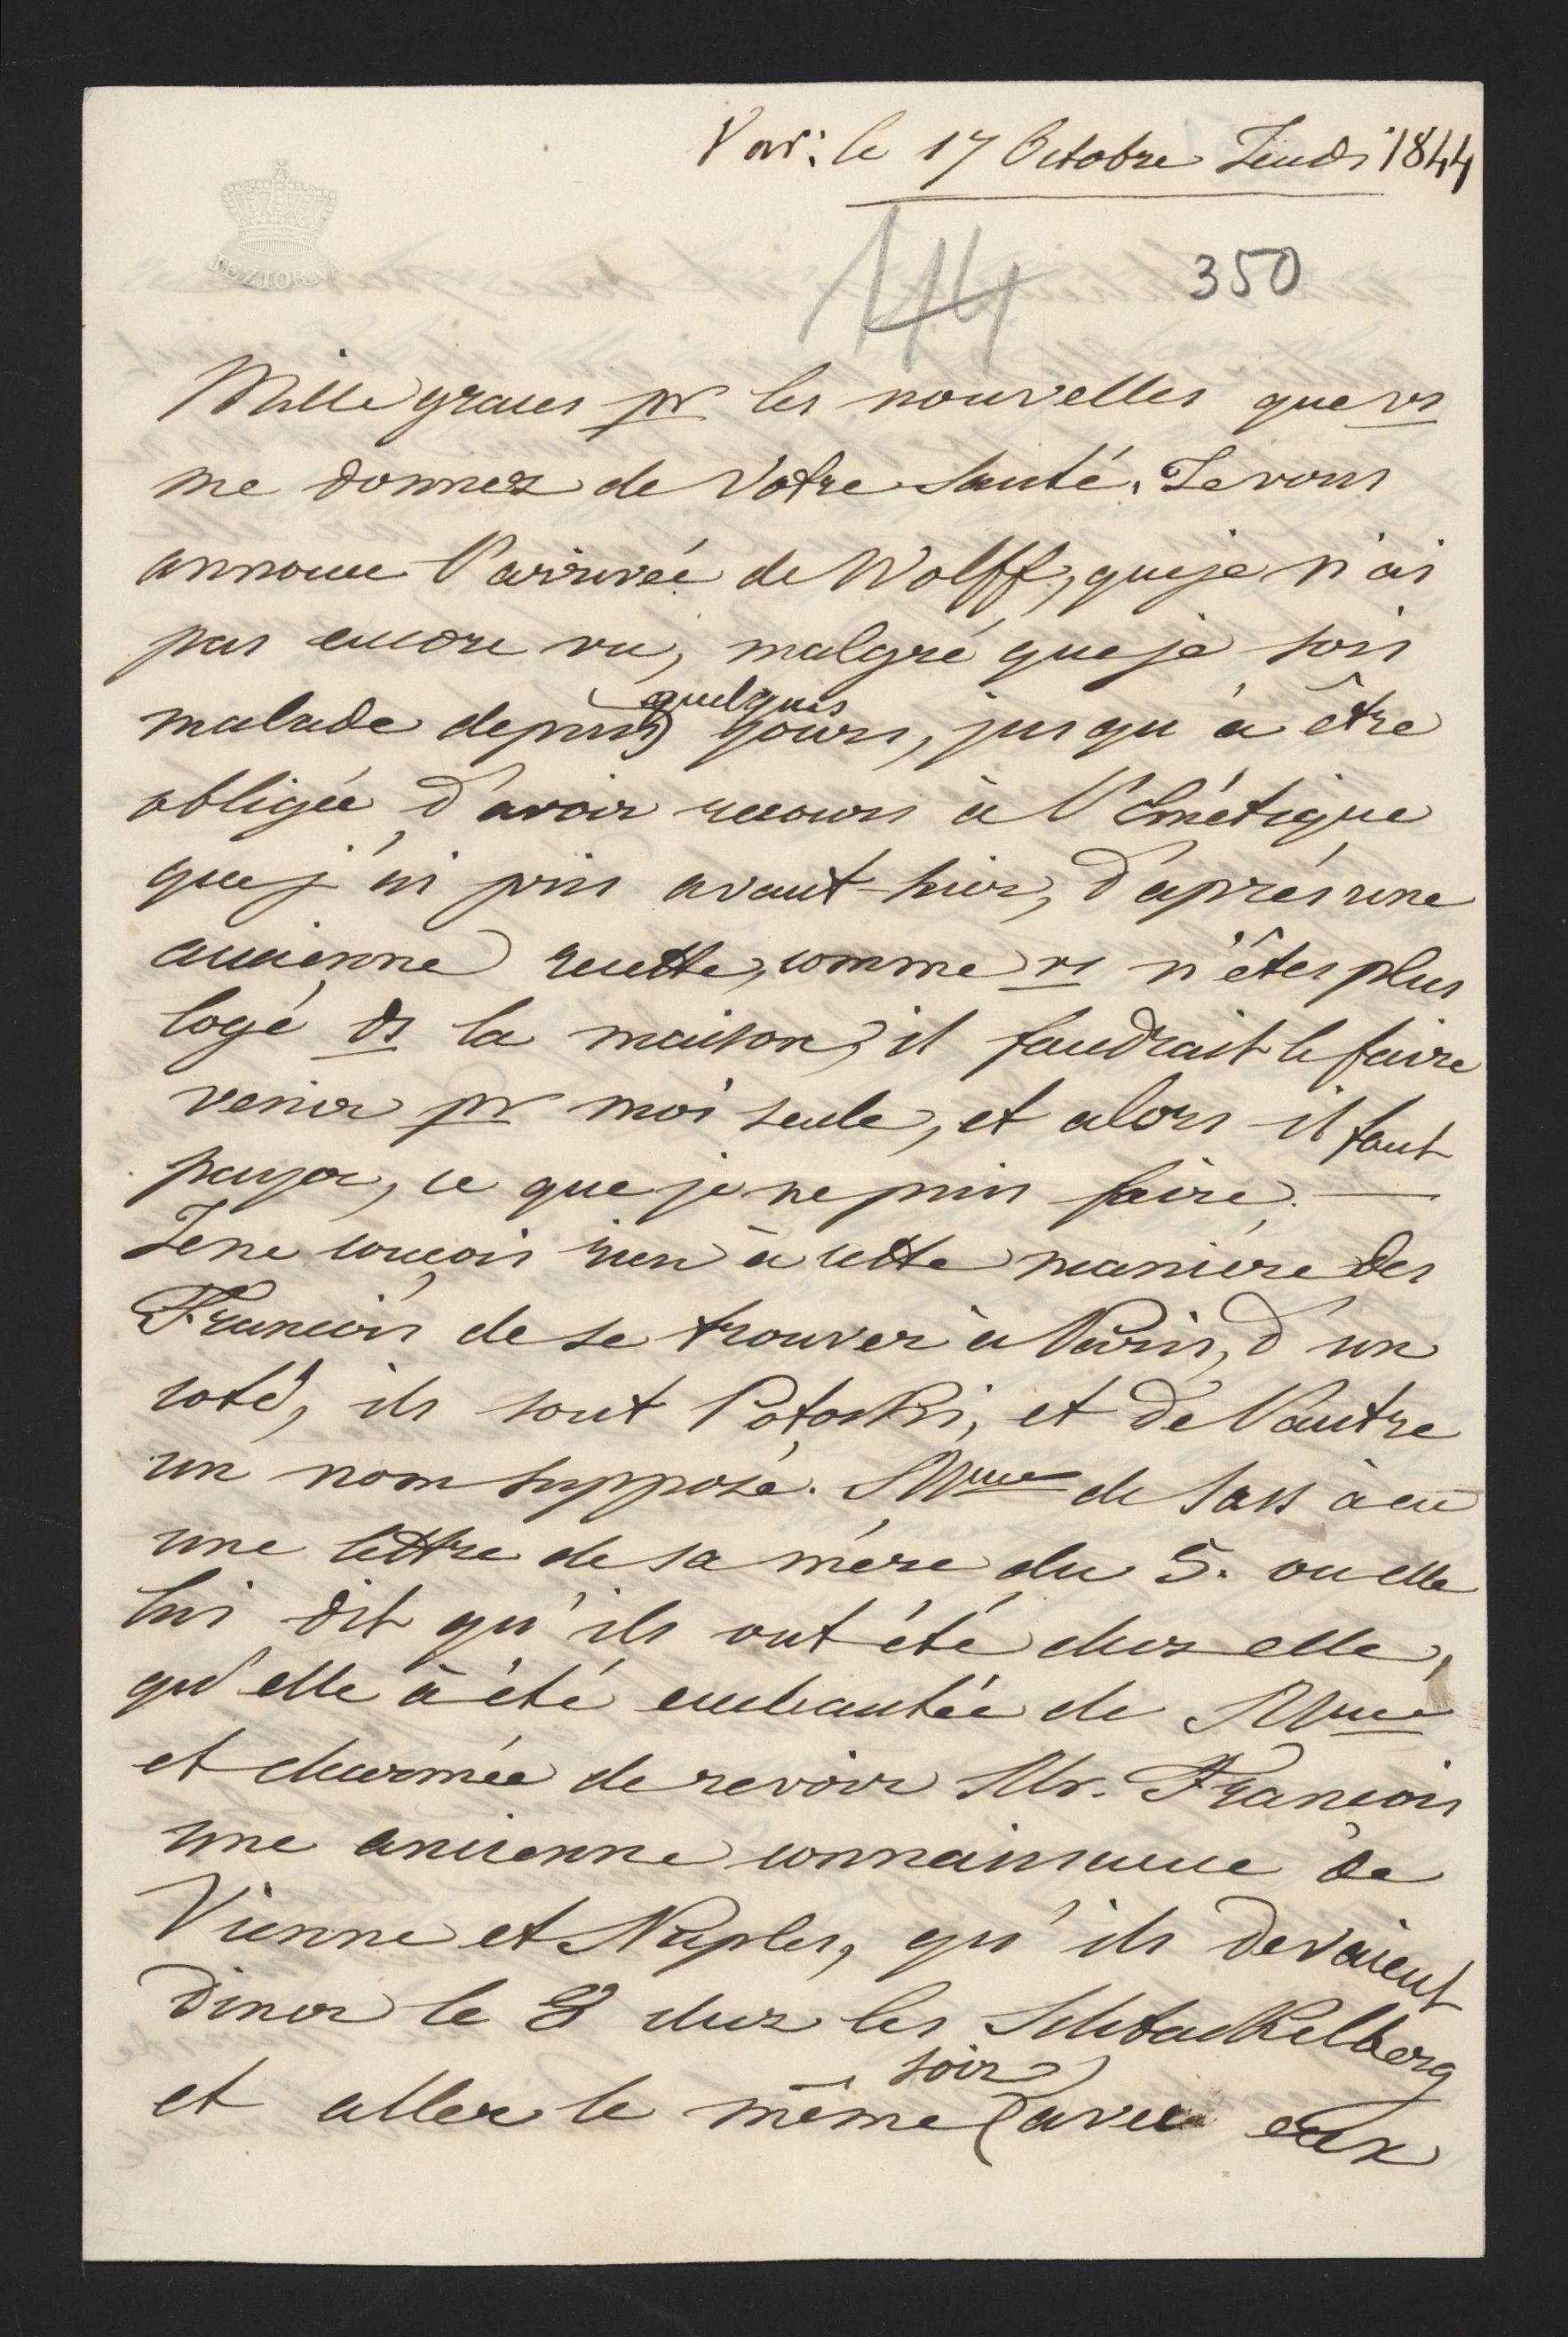 Vars: le 17 Octobre Jeudi 1844
JEZIORNA
144
350
Mille graces pr les nouvelles que vs
me donnez de Votre Santé. Je vous
annonce l'arrivée de Wolff, que je n'ai
pas encore vu, malgré que je sois
quelques
malade depuis jours, jusqu'à être
obligée d'avoir recours à l'Emétique
que j'ai pris avant-hier, d'après une
ancienne recette, comme vs n'êtes plus
logé ds la maison, il faudrait le faire
venir pr moi seule, et alors il faut
payer, ce que je ne puis faire. —
Je ne conçois rien à cette manière des
François de se trouver à Paris, d'un
coté, ils sont Potocki, et de l'autre
un nom supposé. Mme de Sass à eu
une lettre de sa mère du 5. ou elle
lui dit qu'ils ont été chez elle,
qu'elle à été enchantée de Mme
et charmée de revoir Mr. François
une ancienne connaissance de
Vienne et Naples, qu'ils devaient
diner le 8 chez les Schtackelberg
soir
et aller le même avec eux